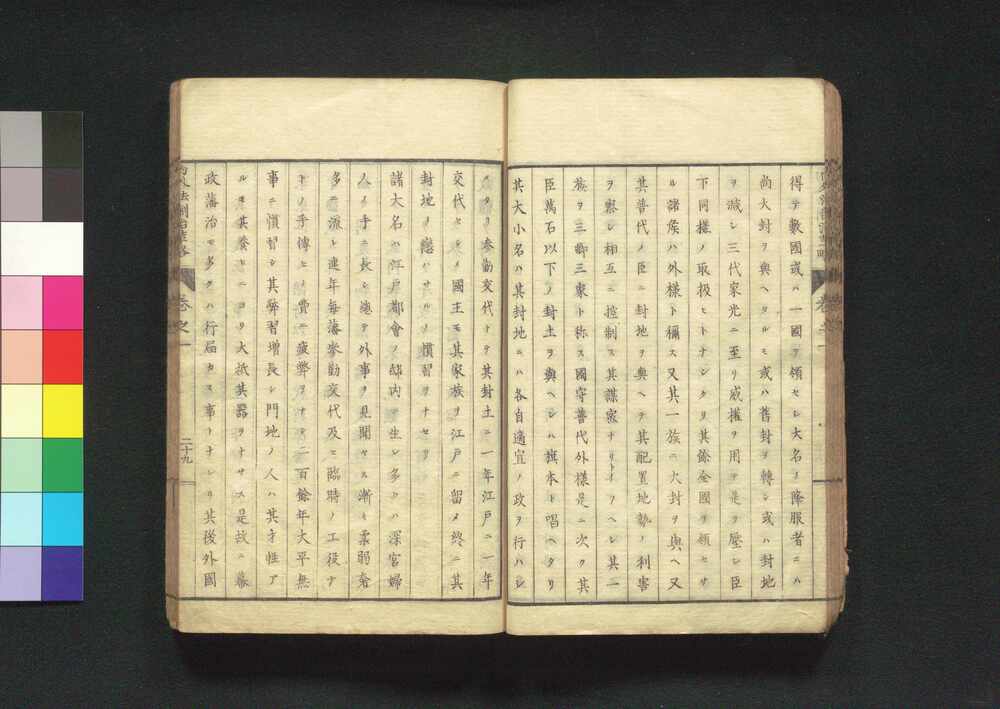 得テ數國或ハ一國ヲ領セシ大名ノ降服者ニハ
尚大封ヲ與ヘタルモ或ハ舊封ヲ轉シ或ハ封地
ヲ減シ三代家光ニ至リ威權ヲ用テ是ヲ壓シ臣
下同樣ノ取扱ヒトナシタリ其餘全國ヲ領セサ
ル諸侯ハ外樣ト稱ス又其一族ニ大封ヲ與ヘ又
其普代ノ臣ニ封地ヲ與ヘテ其配置地勢ノ利害
ヲ察シ相互ニ控制ス其謀密ナリトイフヘシ其一
族ヲ三卿三家ト称ス國守普代外様是ニ次ク其
臣萬石以下ノ封土ヲ與ヘシハ旗本ト唱ヘタリ
其大小名ハ其封地ニハ各自適宜ノ政ヲ行ハシ
メタリ参勤交代トテ其封土ニ一年江戸ニ一年
交代セシメ國主モ其家族ヲ江戸ニ留メ終ニ其
封地ノ戀ハサルノ慣習ヲナセリ
諸大名ハ江戸都會ノ邸内ニ生シ多クハ深宮婦
人ノ手ニ長シ總テ外事ヲ見聞セス漸ク柔弱奢
多ニ流レ連年毎藩参勤交代及ヒ臨時ノ工役ナ
トノ手傳ヒノ費ニ疲弊ヲナシ二百餘年大平無
事ニ慣習シ其弊習增長シ門地ノ人ハ其才性ア
ルモ其養ヒニヨリ大抵其器ヲナサス是故ニ幕
政藩治モ多クハ行屆カス事トナレリ其後外國
卷之一
二十九